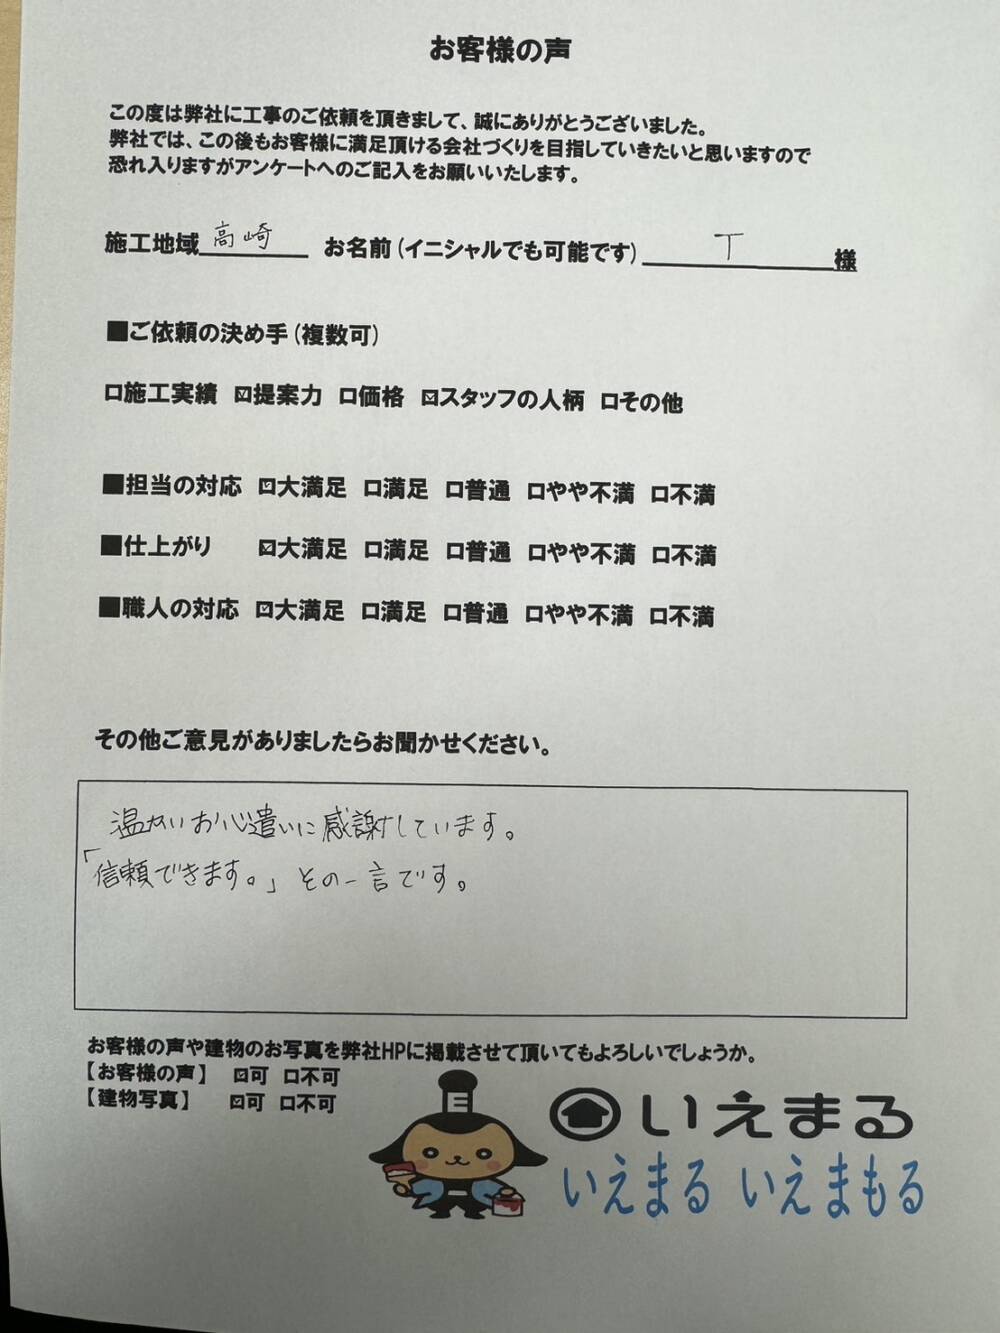 お客様の声
この度は弊社に工事のご依頼を頂きまして、誠にありがとうございました。
弊社では、この後もお客様に満足頂ける会社づくりを目指していきたいと思いますので
恐れ入りますがアンケートへのご記入をお願いいたします。
施工地域 高崎 お名前(イニシャルでも可能です) T 様
■ご依頼の決め手(複数可)
□施工実績 ☑提案力 □価格 ☑スタッフの人柄 □その他
■担当の対応 ☑大満足 □満足 □普通 □やや不満 □不満
■仕上がり ☑大満足 □満足 □普通 □やや不満 □不満
■職人の対応 ☑大満足 □満足 □普通 □やや不満 □不満
その他ご意見がありましたらお聞かせください。
温かいお心遣いに感謝しています。
「信頼できます。」その一言です。
お客様の声や建物のお写真を弊社HPに掲載させて頂いてもよろしいでしょうか。
【お客様の声】 ☑可 □不可
【建物写真】 ☑可 □不可
E
いえまる
いえまる いえまもる